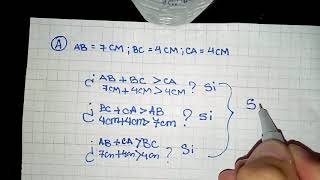 A AB = 7CM ; BC = 4CM ; CA = 4CM
¿ AB + BC > CA ? Si
7CM + 4CM > 4CM
¿ BC + CA > AB ? Si
4CM + 4CM > 7CM
¿ AB + CA > BC ? Si
7CM + 4CM > 4CM
S